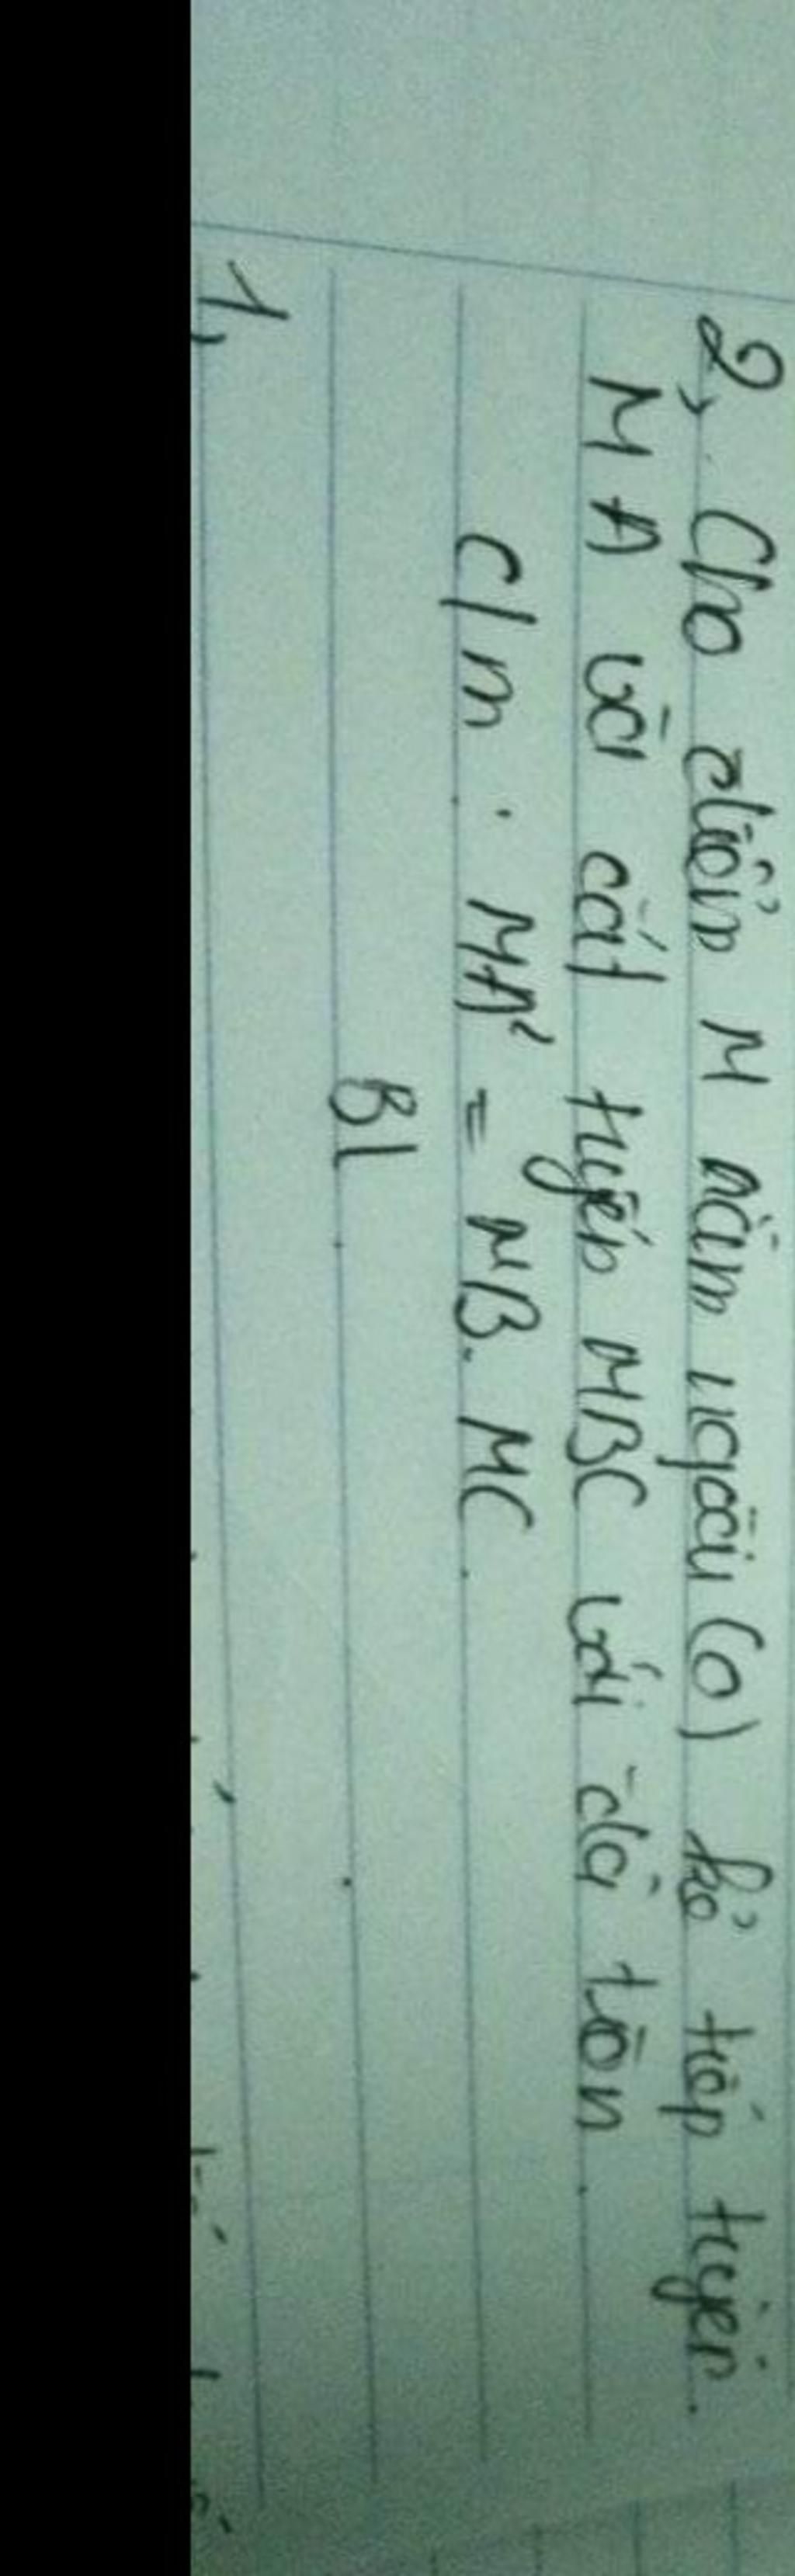 2, Cho điểm M nằm ngoài (O) kẻ tiếp tuyến
MA và cát tuyến MBC với đg tròn.
c/m : MA² = MB. MC.
Bl
1,